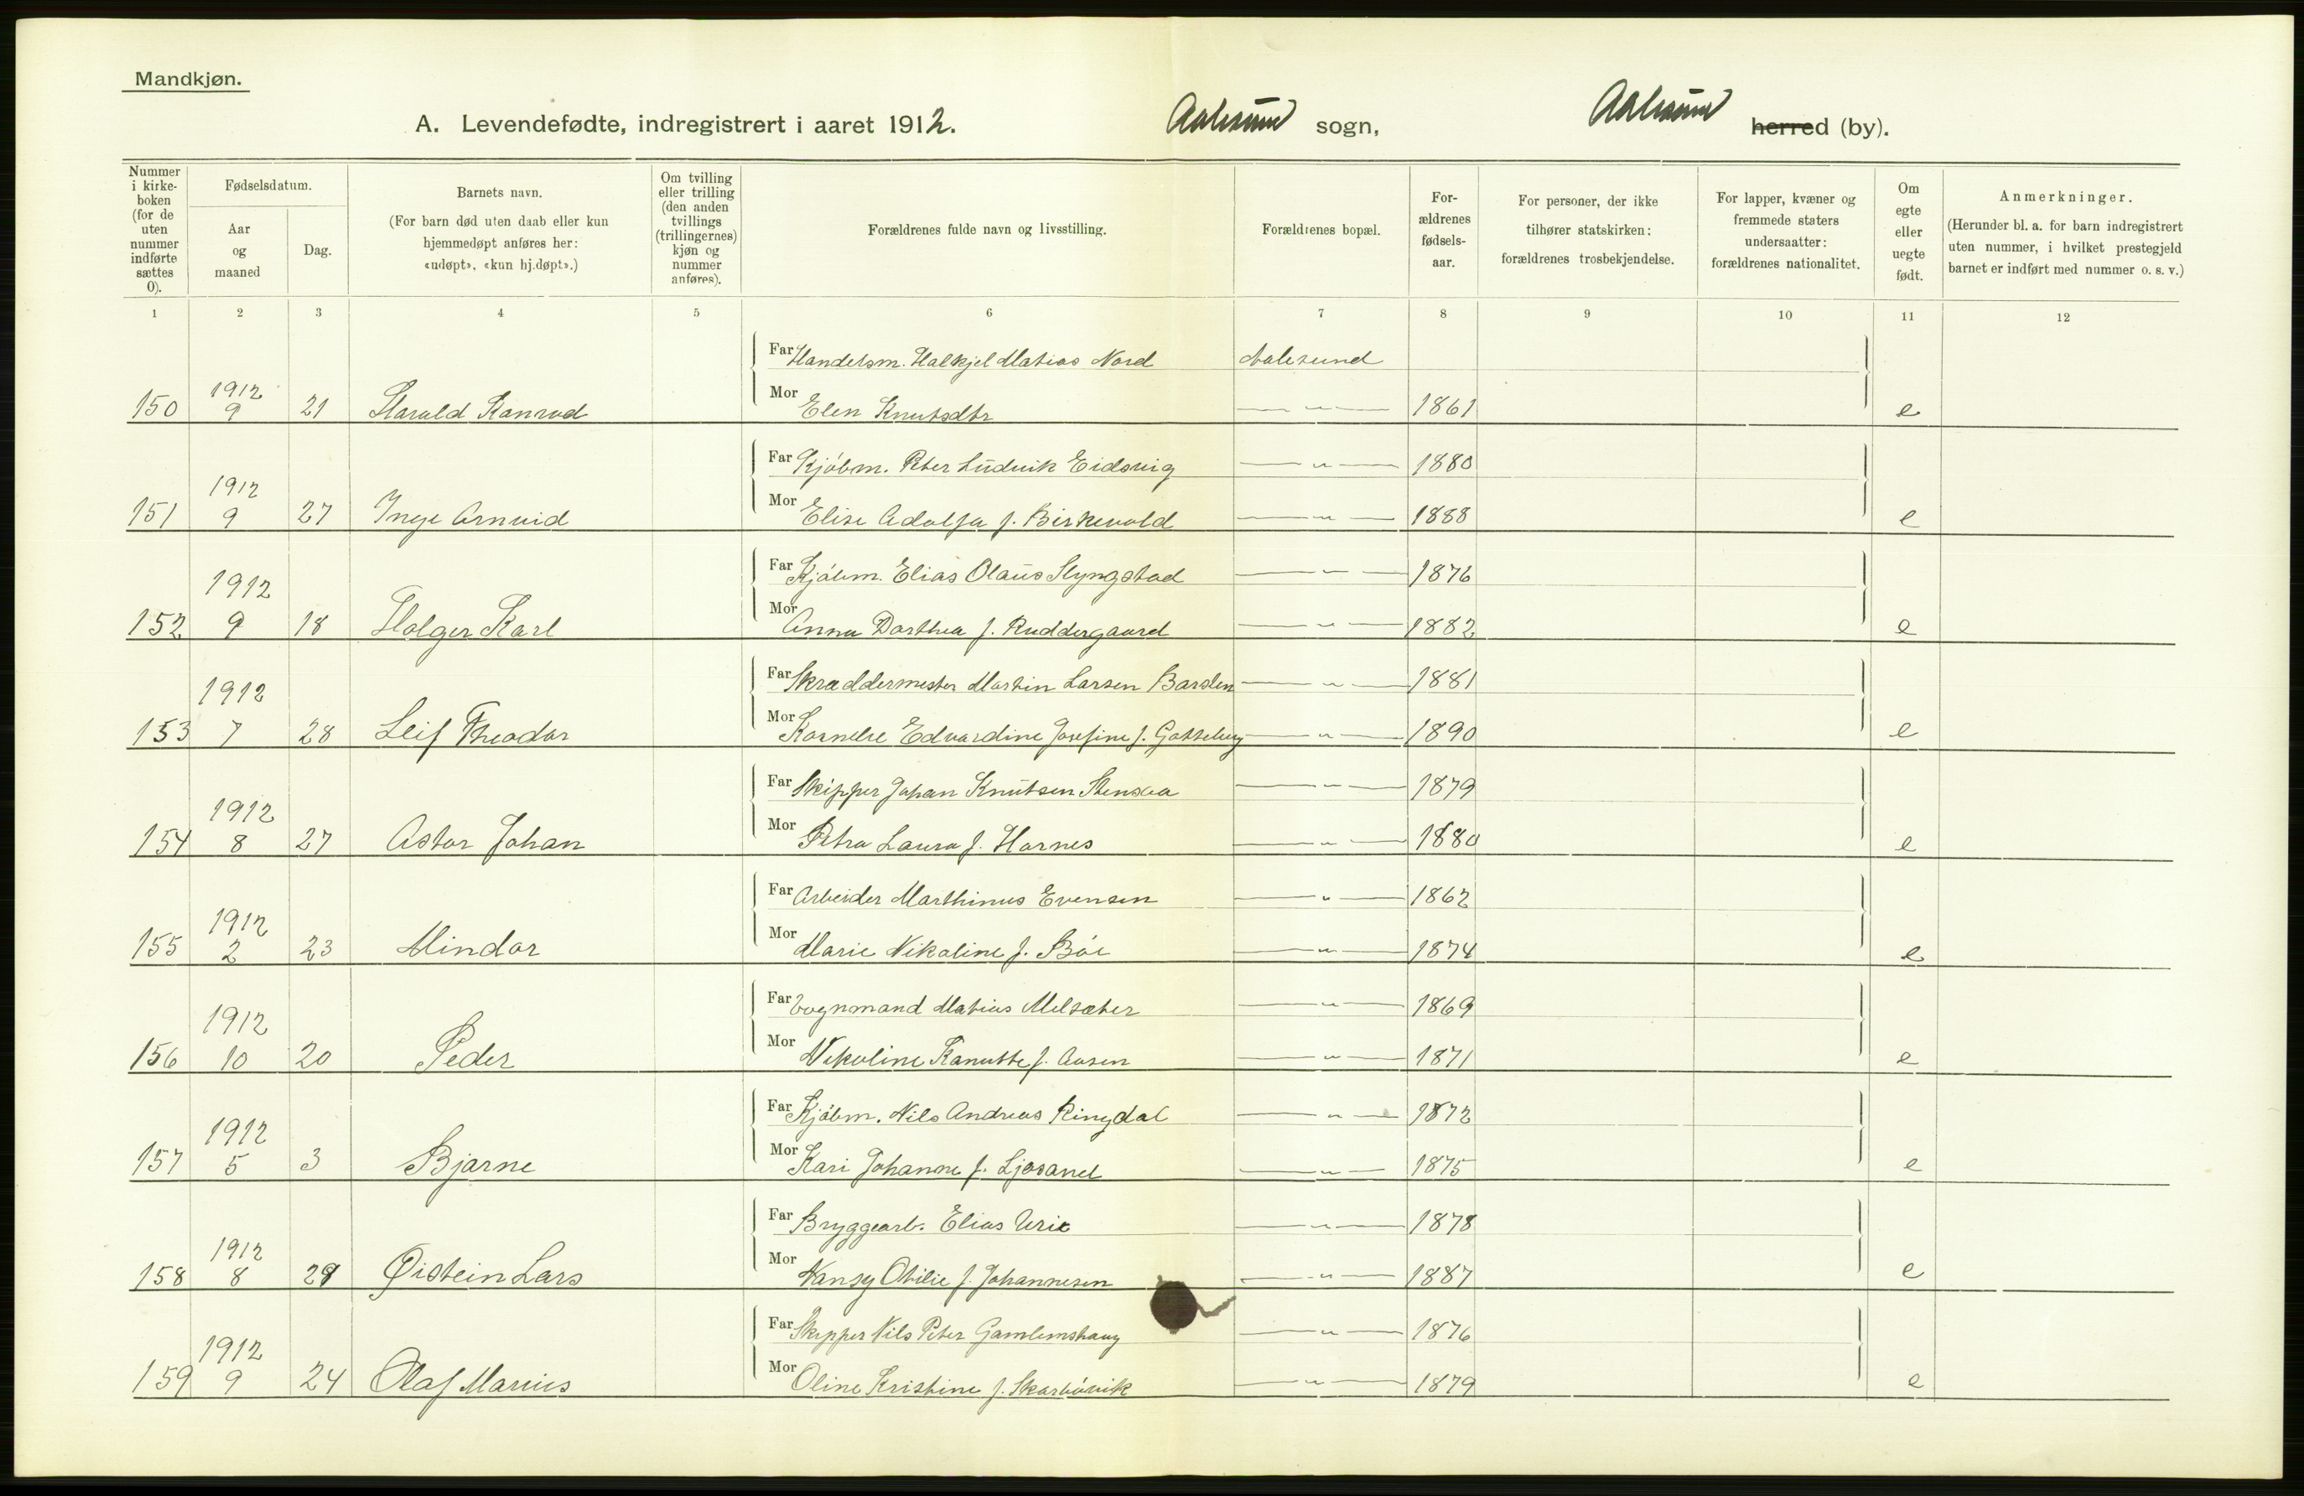 Mandkjøn.
A. Levendefødte, indregistrert i aaret 1912. Aalesund sogn, Aalesund herred (by).
Nummer i kirkeboken (for de uten nummer indførte sættes 0).
Fødselsdatum.
Aar og maaned
Dag.
Barnets navn.
(For barn død uten daab eller kun hjemmedøpt anføres her: «udøpt», «kun hj.døpt».)
Om tvilling eller trilling (den anden tvillings (trillingernes) kjøn og nummer anføres).
Forældrenes fulde navn og livsstilling.
Forældrenes bopæl.
Forældrenes fødselsaar.
For personer, der ikke tilhører statskirken: forældrenes trosbekjendelse.
For lapper, kvæner og fremmede staters undersaatter: forældrenes nationalitet.
Om egte eller uegte født.
Anmerkninger.
(Herunder bl. a. for barn indregistrert uten nummer, i hvilket prestegjeld barnet er indført med nummer o. s. v.)
1 2 3 4 5 6 7 8 9 10 11 12
Far Handelsm. Halkjel Matias Nord Aalesund
150 1912 9 21 Harald Konrad Mor Elen Knutsdtr — " — 1861 e
Far Kjöbm. Peter Ludvik Eidsvig — " — 1880
151 1912 9 27 Inge Arnvid Mor Elise Adolfa f. Birkevold — " — 1888 e
Far Kjöbm. Elias Olaus Slyngstad — " — 1876
152 1912 9 18 Holger Karl Mor Anna Dorthea f. Ruddergaard — " — 1882 e
Far Skræddermester Martin Larsen Barslen — " — 1881
153 1912 7 28 Leif Theodor Mor Kornelse Edvardine Josefine f. Gotteberg — " — 1890 e
Far Skipper Johan Knutsen Stensaa — " — 1879
154 1912 8 27 Astor Johan Mor Petra Laura f. Hornes — " — 1880 e
Far Arbeider Marthinus Evensen — " — 1862
155 1912 2 23 Mindor Mor Marie Nikoline f. Böe — " — 1874 e
Far Vognmand Matias Melsæter — " — 1869
156 1912 10 20 Peder Mor Nikoline Kanutte f. Aasen — " — 1871 e
Far Kjöbm. Nils Andreas Ringdal — " — 1872
157 1912 5 3 Bjarne Mor Kari Johanne f. Ljosand — " — 1875 e
Far Bryggearb. Elias Urie — " — 1878
158 1912 8 29 Øistein Lars Mor Nansy Otilie f. Johannesen — " — 1887 e
Far Skipper Nils Peter Gamlemshaug — " — 1876
159 1912 9 24 Olaf Marius Mor Oline Kristine f. Skarbövik — " — 1879 e